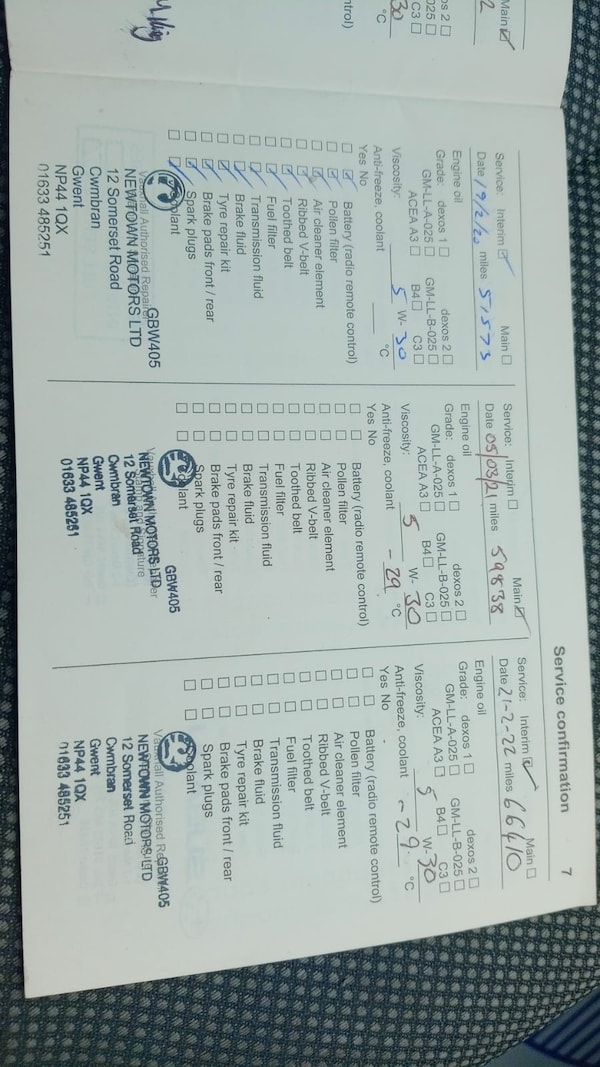 Main
2
os 2
025
C3
30 °C
ntrol)
Service confirmation 7
Service: Interim Main
Date 19/2/20 miles 51573
Engine oil
Grade: dexos 1 dexos 2
GM-LL-A-025 GM-LL-B-025
ACEA A3 B4 C3
Viscosity: 5 W- 30
Anti-freeze, coolant °C
Yes No
Battery (radio remote control)
Pollen filter
Air cleaner element
Ribbed V-belt
Toothed belt
Fuel filter
Transmission fluid
Brake fluid
Tyre repair kit
Brake pads front / rear
Spark plugs
Vauxhall Authorised Repairer
GBW405
NEWTOWN MOTORS LTD
12 Somerset Road
Cwmbran
Gwent
NP44 1QX
01633 485251
Service: Interim Main
Date 05/03/21 miles 59838
Engine oil
Grade: dexos 1 dexos 2
GM-LL-A-025 GM-LL-B-025
ACEA A3 B4 C3
Viscosity: 5 W- 30
Anti-freeze, coolant -29 °C
Yes No
Battery (radio remote control)
Pollen filter
Air cleaner element
Ribbed V-belt
Toothed belt
Fuel filter
Transmission fluid
Brake fluid
Tyre repair kit
Brake pads front / rear
Spark plugs
GBW405
NEWTOWN MOTORS LTD
12 Somerset Road
Cwmbran
Gwent
NP44 1QX
01633 485251
Service: Interim Main
Date 21-2-22 miles 66410
Engine oil
Grade: dexos 1 dexos 2
GM-LL-A-025 GM-LL-B-025
ACEA A3 B4 C3
Viscosity: 5 W- 30
Anti-freeze, coolant -29 °C
Yes No
Battery (radio remote control)
Pollen filter
Air cleaner element
Ribbed V-belt
Toothed belt
Fuel filter
Transmission fluid
Brake fluid
Tyre repair kit
Brake pads front / rear
Spark plugs
Vauxhall Authorised
GBW405
NEWTOWN MOTORS LTD
12 Somerset Road
Cwmbran
Gwent
NP44 1QX
01633 485251